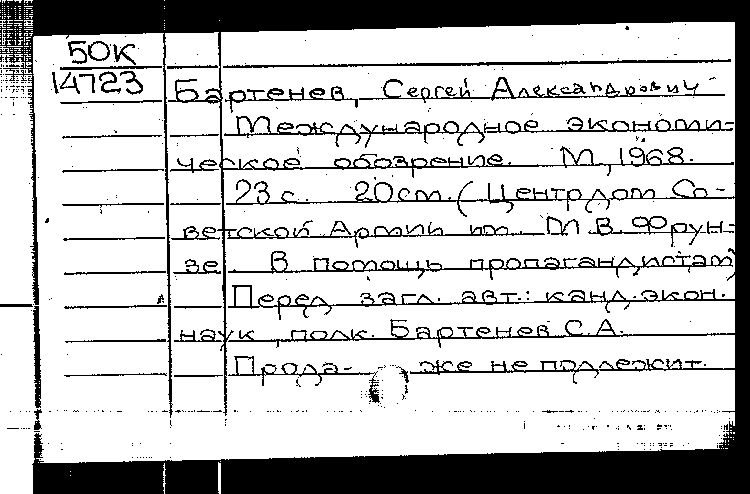 50К
14723
Бартенев, Сергей Александрович
Международное экономи-
ческое обозрение. М., 1968.
23 с. 20 см. (Центр дом Со-
ветской Армии им. М.В. Фрун-
зе. В помощь пропагандистам)
Перед загл. авт.: канд. экон.
наук, полк. Бартенев С.А.
Прода- же не подлежит.